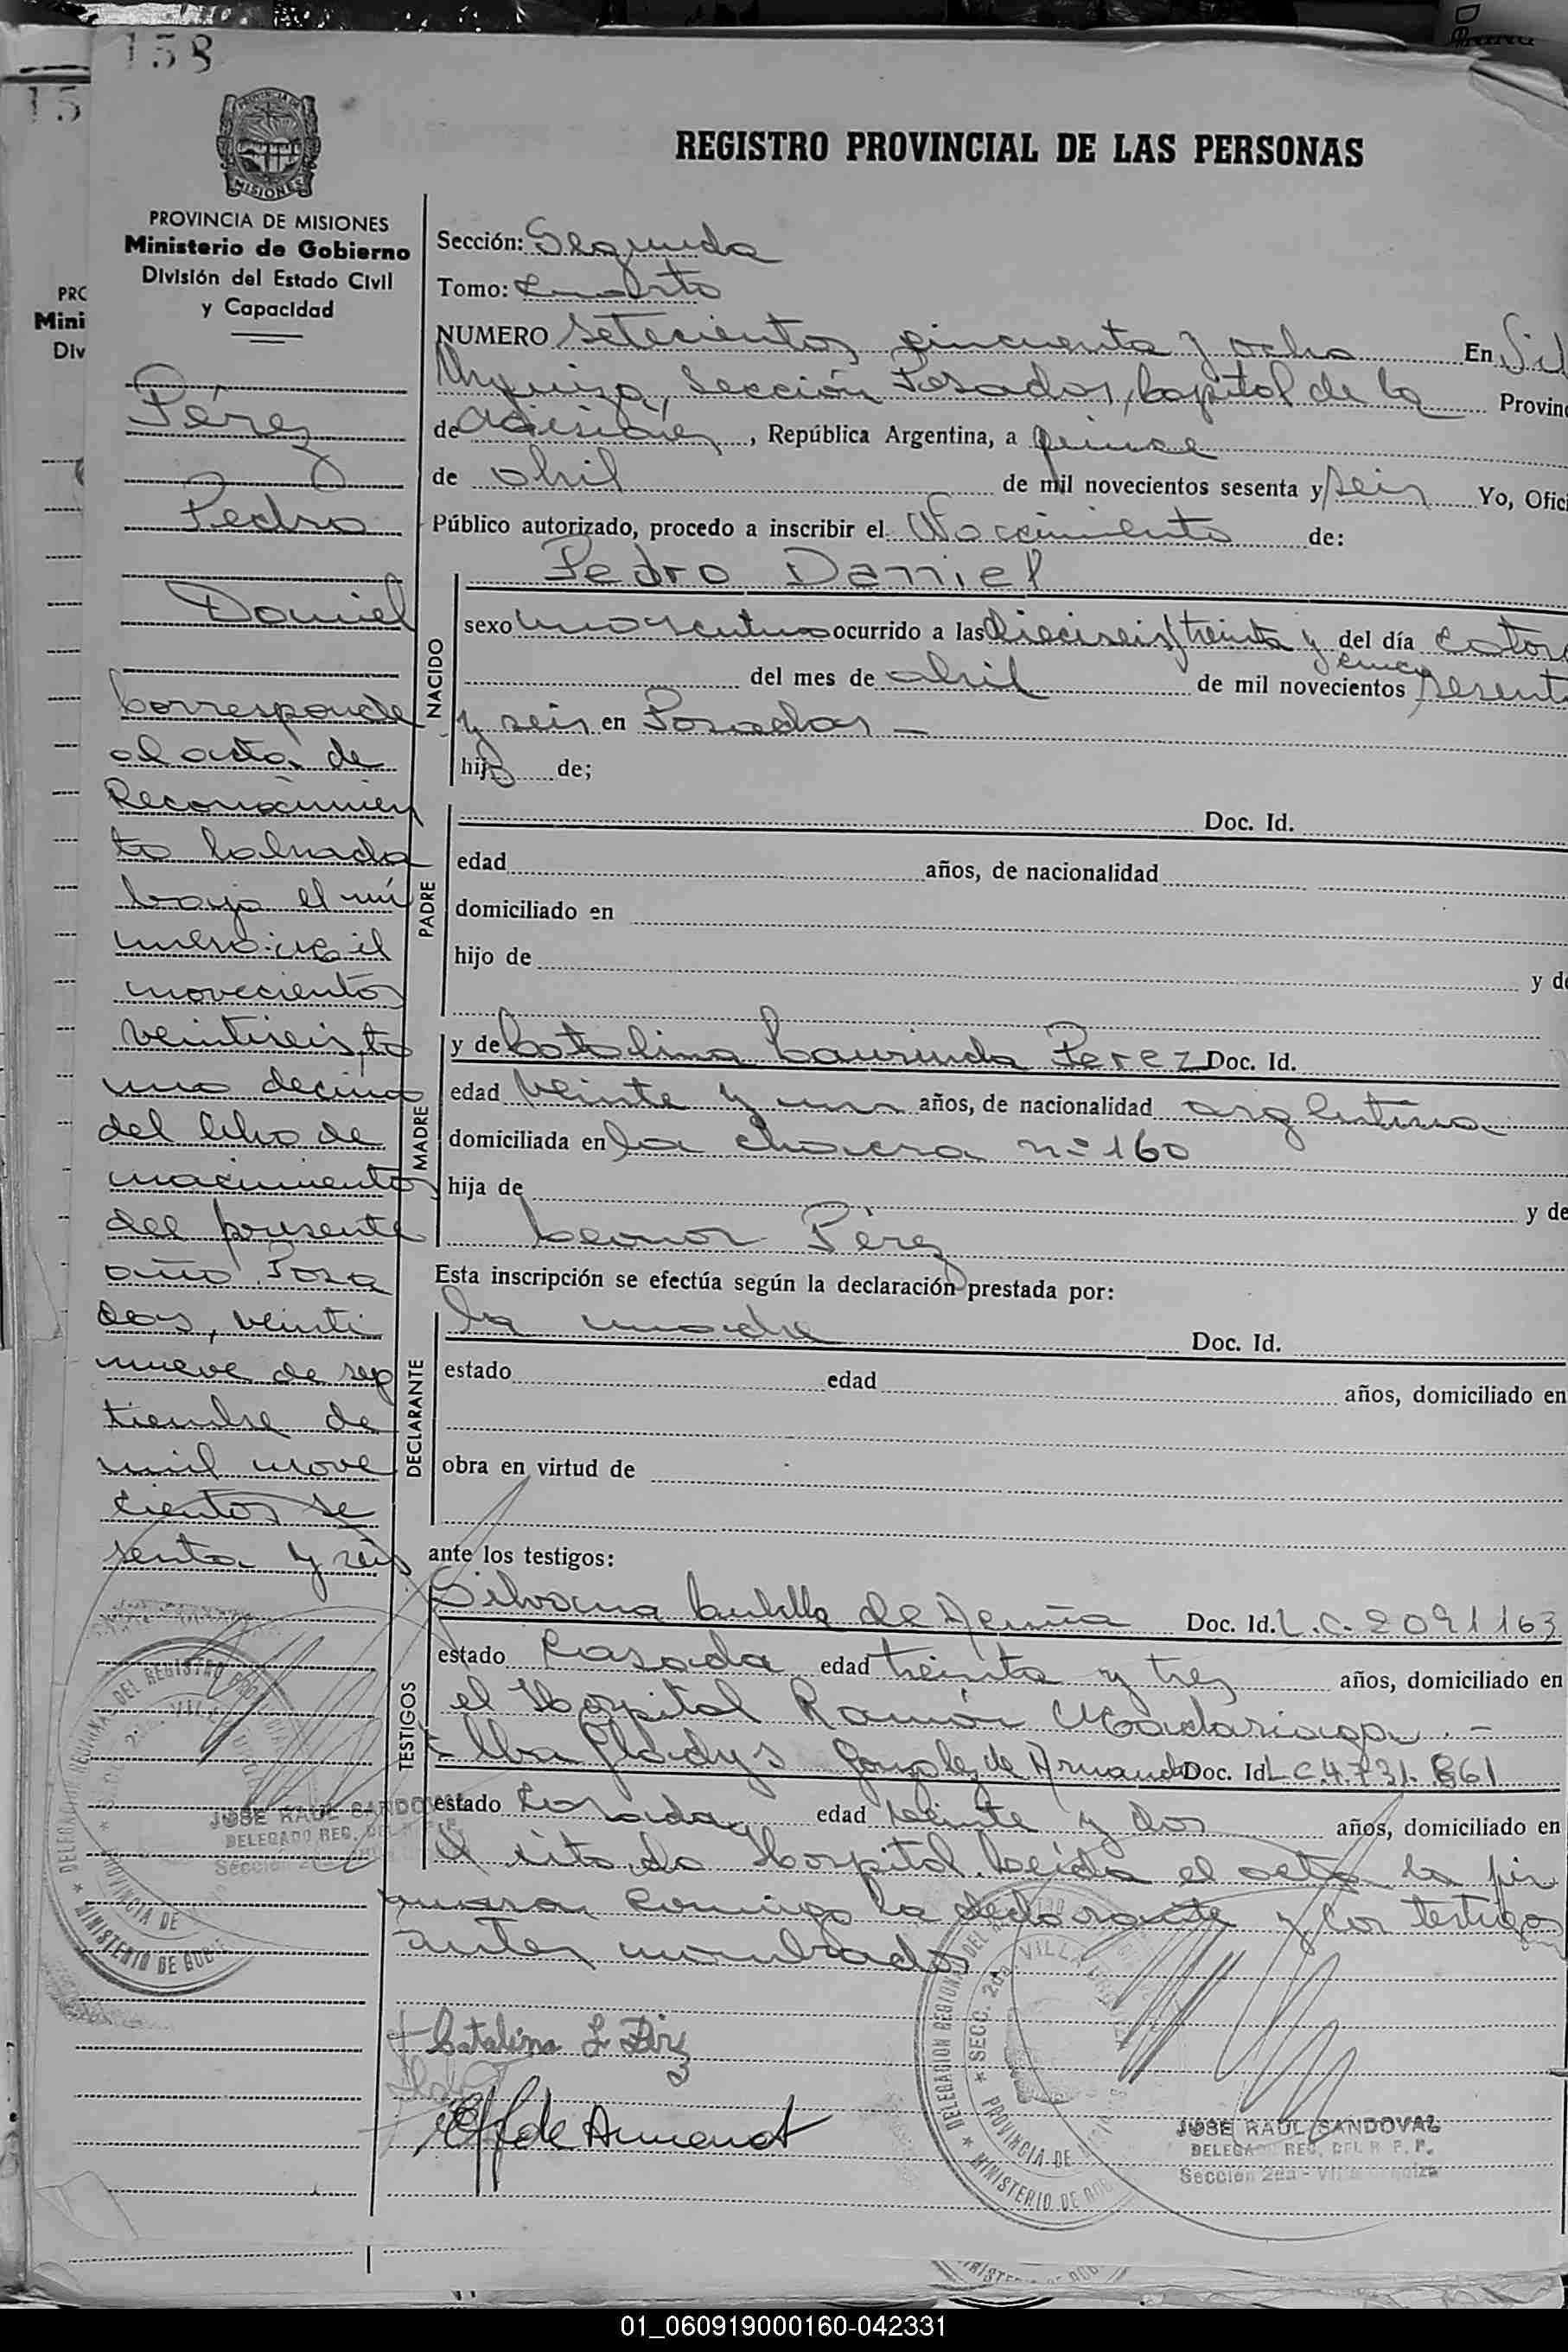 158
15
REGISTRO PROVINCIAL DE LAS PERSONAS
PROVINCIA DE MISIONES
Ministerio de Gobierno
División del Estado Civil
y Capacidad
PRC
Mini
Div
Pérez
Pedro
Daniel
Corresponde
al acta de
Reconocimien
to labrada
bajo el nú
mero: mil
novecientos
veintiseis, to
mo decimo
del libro de
nacimientos
del presente
año. Posa
das, veinti
nueve de sep
tiembre de
mil nove
cientos se
senta y seis
Sección: Segunda
Tomo: Cuarto
NUMERO Setecientos cincuenta y ocho En Vil
Urquiza, Sección Posadas, Capital de la Provinc
de Misiones, República Argentina, a quince
de abril de mil novecientos sesenta y seis Yo, Ofici
Público autorizado, procedo a inscribir el Nacimiento de:
NACIDO
Pedro Daniel
sexo masculino ocurrido a las dieciseis, treinta y cinco del día catorc
del mes de abril de mil novecientos sesent
y seis en Posadas —
hijo de;
PADRE
Doc. Id.
edad años, de nacionalidad
domiciliado en
hijo de y de
MADRE
y de Catalina Laurinda Perez Doc. Id.
edad veinte y un años, de nacionalidad argentina
domiciliada en la chacra nº 160
hija de y de
Leonor Pérez
Esta inscripción se efectúa según la declaración prestada por:
DECLARANTE
la madre Doc. Id.
estado edad años, domiciliado en
obra en virtud de
ante los testigos:
TESTIGOS
Silvana de Doc. Id. L.C. 2091163
estado Casada edad treinta y tres años, domiciliado en
el Hospital Ramón Madariaga.-
Elba Gladys Gonzalez de Doc. Id L C 4.731.861
estado Casada edad veinte y dos años, domiciliado en
el citado Hospital. Leída el acta la fir
maron conmigo la declarante y los testigos
antes nombrados
Catalina L Pérez
JOSE RAUL SANDOVAL
DELEGADO REG. DEL
Sección 2
DELEGACION REGIONAL DEL REGISTRO PROVINCIAL
SECC. 2da. VILLA URQUIZA
PROVINCIA DE
MINISTERIO DE GOBIE
DELEGACION REGIONAL DEL
SECC. 2da VILLA
PROVINCIA DE
MINISTERIO DE GOB
JOSE RAUL SANDOVAL
DELEGADO REG. DEL R. P. P.
Sección 2da - Villa Urquiza
01_060919000160-042331